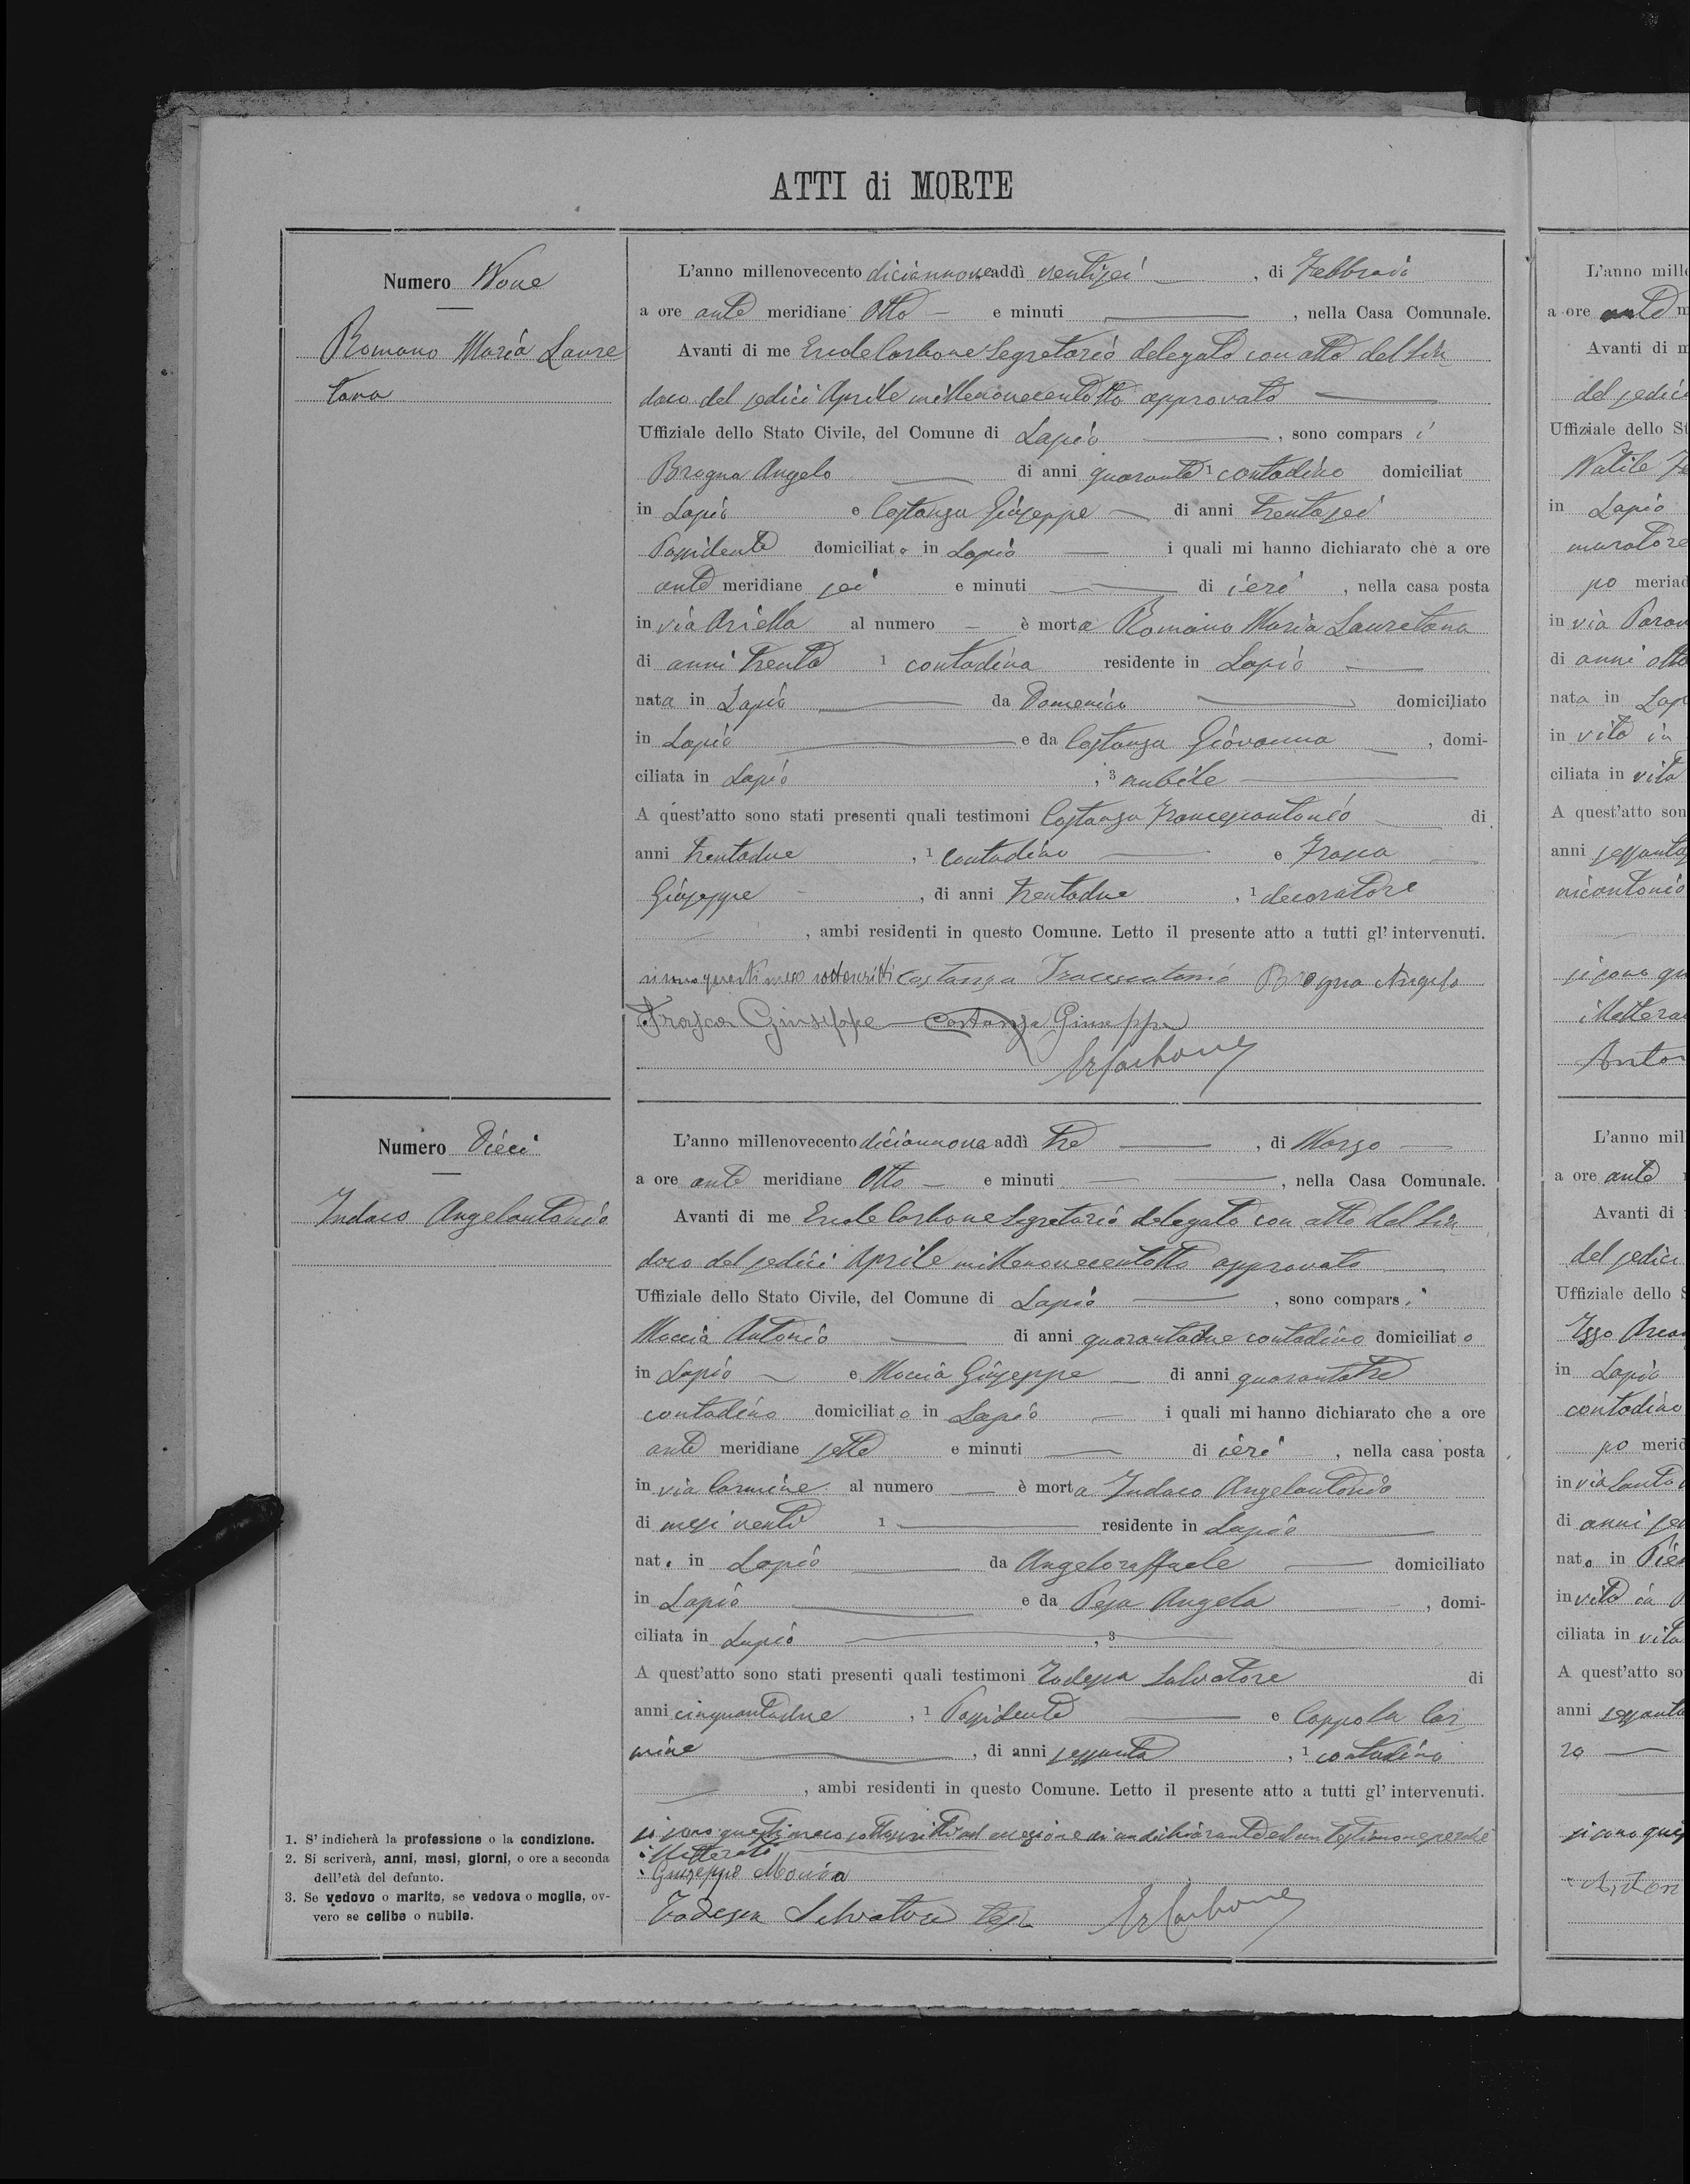 ATTI di MORTE
Numero Nove
Romano Maria Laure
tana
L'anno millenovecento diciannove addì ventisei , di Febbraio
a ore ante meridiane Otto e minuti , nella Casa Comunale.
Avanti di me Ercole Carbone Segretario delegato con atto del Sin
daco del sedici Aprile millenovecentotto approvato
Uffiziale dello Stato Civile, del Comune di Lapio , sono compars i
Brogna Angelo di anni quaranta 1 contadino domiciliat
in Lapio e Costanza Giuseppe di anni trentasei
Possidente domiciliato in Lapio i quali mi hanno dichiarato che a ore
ante meridiane sei e minuti di ieri , nella casa posta
in via Ariella al numero è morta Romano Maria Lauretana
di anni trenta 1 contadina residente in Lapio
nata in Lapio da Domenico domiciliato
in Lapio e da Costanza Giovanna , domi-
ciliata in Lapio , 3 nubile
A quest'atto sono stati presenti quali testimoni Costanza Francescantonio di
anni trentadue , 1 Contadino e Frasca
Giuseppe , di anni trentadue , 1 decoratore
, ambi residenti in questo Comune. Letto il presente atto a tutti gl' intervenuti.
si sono questi meco sottoscritti Costanza Francescantonio Brogna Angelo
Frasca Giuseppe Costanza Giuseppe
Er Carbone
Numero Dieci
Indaco Angelantonio
L'anno millenovecento diciannove addì tre , di Marzo
a ore ante meridiane Otto e minuti , nella Casa Comunale.
Avanti di me Ercole Carbone Segretario delegato con atto del Sin
daco del sedici Aprile millenovecentotto approvato
Uffiziale dello Stato Civile, del Comune di Lapio , sono compars i
Moccia Antonio di anni quarantadue contadino domiciliato
in Lapio e Moccia Giuseppe di anni quarantatre
contadino domiciliato in Lapio i quali mi hanno dichiarato che a ore
ante meridiane sette e minuti di ieri , nella casa posta
in via Carmine al numero è morta Indaco Angelantonio
di mesi venti 1 residente in Lapio
nato in Lapio da Angeloraffaele domiciliato
in Lapio e da Pesa Angela , domi-
ciliata in Lapio , 3
A quest'atto sono stati presenti quali testimoni Todesca Salvatore di
anni cinquantadue , 1 Possidente e Coppola Car
mine , di anni sessanta , 1 contadino
, ambi residenti in questo Comune. Letto il presente atto a tutti gl' intervenuti.
si sono questi meco sottoscritti ad eccezione di un dichiarante ed un testimone perchè
illetterati
Giuseppe Moccia
Todesca Salvatore Er Carbone
1. S' indicherà la professione o la condizione.
2. Si scriverà, anni, mesi, giorni, o ore a seconda
dell'età del defunto.
3. Se vedovo o marito, se vedova o moglie, ov-
vero se celibe o nubile.
L'anno mill
a ore ante m
Avanti di m
del sedici
Uffiziale dello St
Natile
in Lapio
muratore
po merid
in via
di anni otta
nata in Lap
in vita in
ciliata in vita
A quest'atto son
anni
nicantonio
si sono qu
illettera
Anto
L'anno mil
a ore ante
Avanti di
del sedici
Uffiziale dello S
Izzo
in Lapio
contadino
po merid
in via Santo
di anni
nato in
in vita in
ciliata in vita
A quest'atto so
anni sessanta
ro
si sono ques